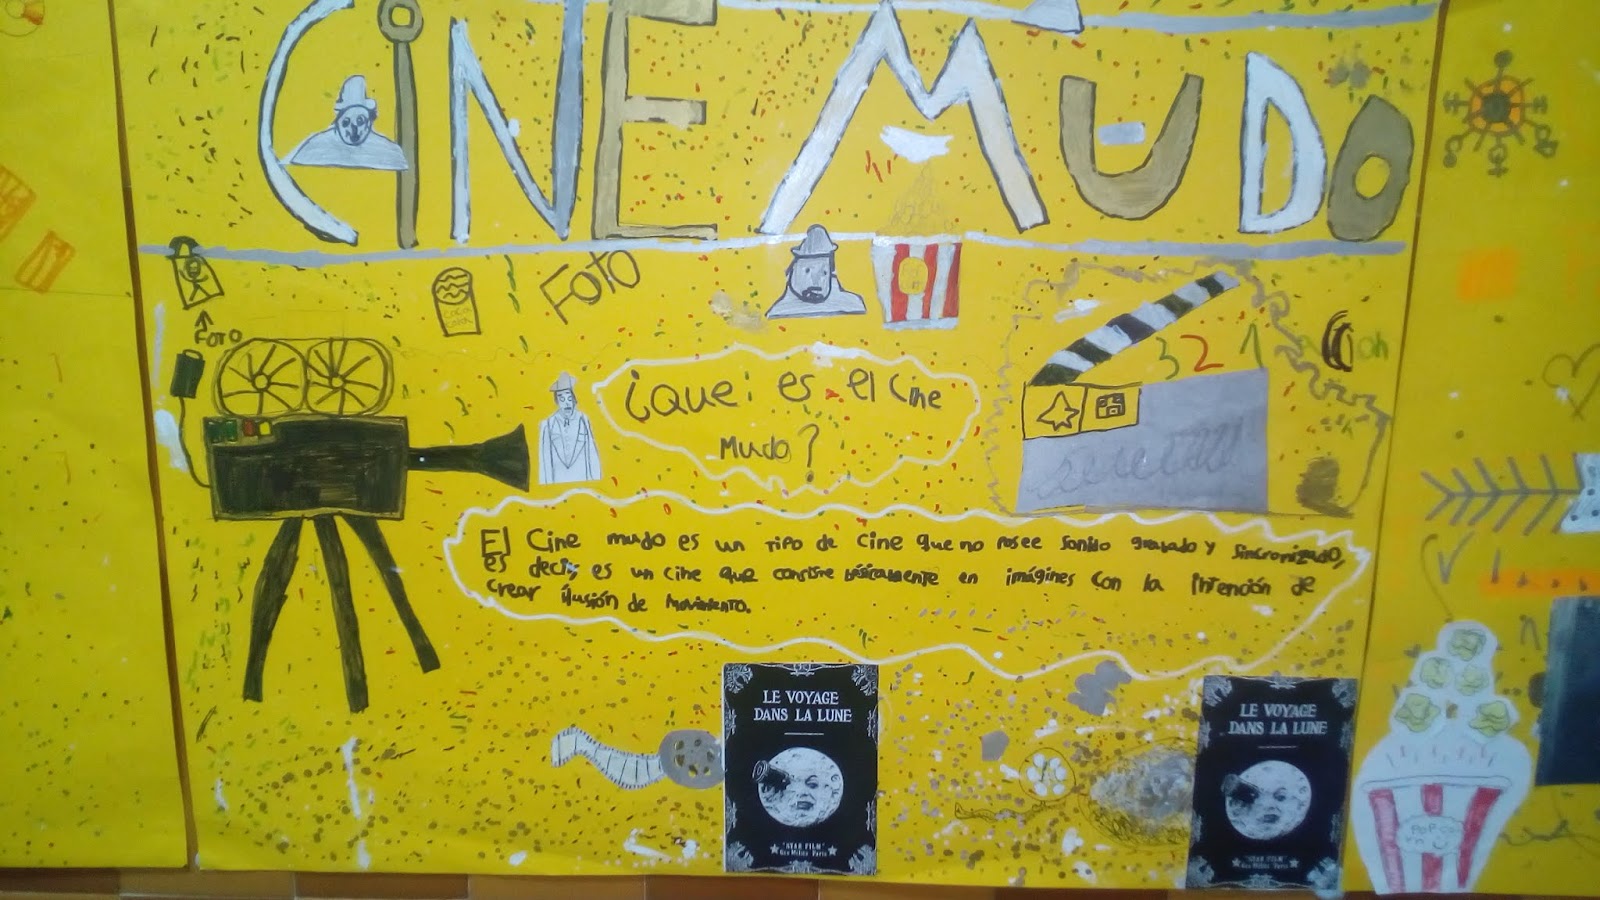 CINE MUDO
FOTO
FOTO
COCA
COLA
3 2 1
¿QUE es el Cine
Mudo?
El Cine mudo es un TIPO DE Cine que no posee sonido grabado y sincronizado,
es decir, es un cine que consiste básicamente en imágines con la intención de
crear ilusión de movimiento.
LE VOYAGE
DANS LA LUNE
"STAR FILM"
Geo Méliès Paris
LE VOYAGE
DANS LA LUNE
"STAR FILM"
Geo Méliès Paris
POP CO
rn